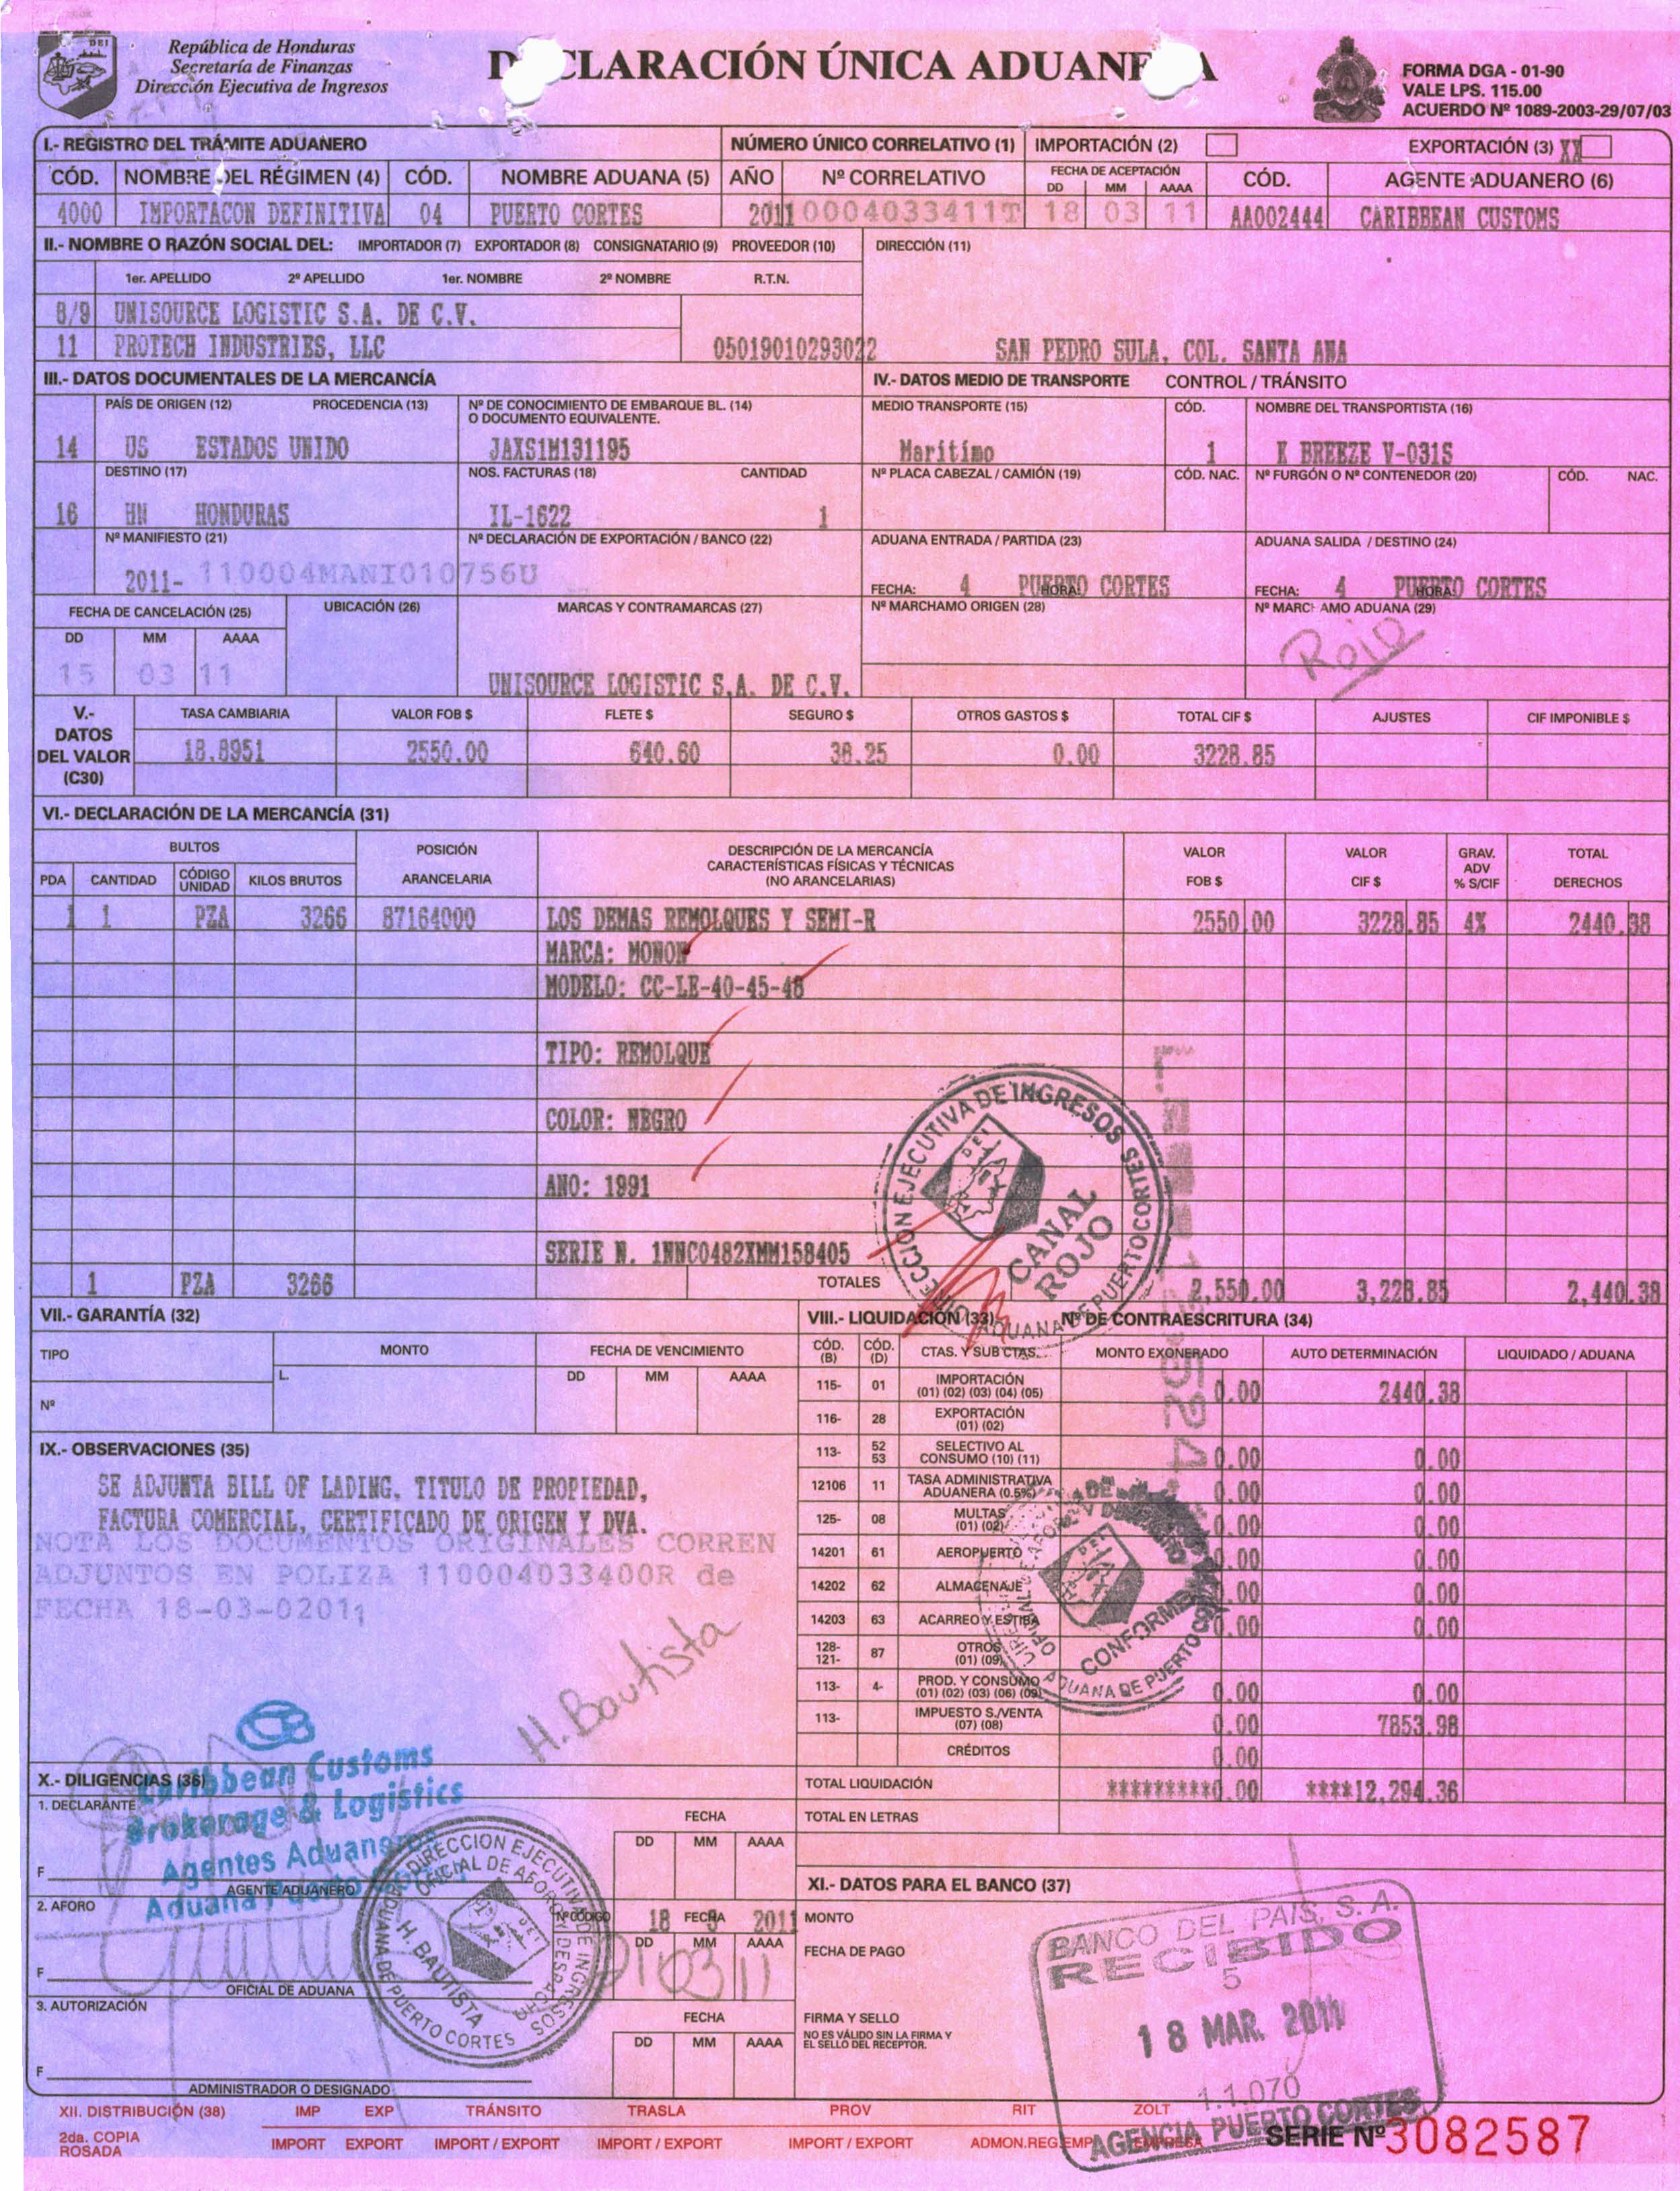 República de Honduras
Secretaría de Finanzas
Dirección Ejecutiva de Ingresos
DECLARACIÓN ÚNICA ADUANERA
FORMA DGA - 01-90
VALE LPS. 115.00
ACUERDO Nº 1089-2003-29/07/03
I.- REGISTRO DEL TRÁMITE ADUANERO NÚMERO ÚNICO CORRELATIVO (1) IMPORTACIÓN (2) EXPORTACIÓN (3) XX
CÓD. NOMBRE DEL RÉGIMEN (4) CÓD. NOMBRE ADUANA (5) AÑO Nº CORRELATIVO FECHA DE ACEPTACIÓN DD MM AAAA CÓD. AGENTE ADUANERO (6)
4000 IMPORTACON DEFINITIVA 04 PUERTO CORTES 2011 0004033411T 18 03 11 AA002444 CARIBBEAN CUSTOMS
II.- NOMBRE O RAZÓN SOCIAL DEL: IMPORTADOR (7) EXPORTADOR (8) CONSIGNATARIO (9) PROVEEDOR (10) DIRECCIÓN (11)
1er. APELLIDO 2º APELLIDO 1er. NOMBRE 2º NOMBRE R.T.N.
8/9 UNISOURCE LOGISTIC S.A. DE C.V.
11 PROTECH INDUSTRIES, LLC 05019010293022 SAN PEDRO SULA, COL. SANTA ANA
III.- DATOS DOCUMENTALES DE LA MERCANCÍA IV.- DATOS MEDIO DE TRANSPORTE CONTROL / TRÁNSITO
PAÍS DE ORIGEN (12) PROCEDENCIA (13) Nº DE CONOCIMIENTO DE EMBARQUE BL. (14) O DOCUMENTO EQUIVALENTE. MEDIO TRANSPORTE (15) CÓD. NOMBRE DEL TRANSPORTISTA (16)
14 US ESTADOS UNIDO JAXS1M131195 Marítimo 1 K BREEZE V-031S
DESTINO (17) NOS. FACTURAS (18) CANTIDAD Nº PLACA CABEZAL / CAMIÓN (19) CÓD. NAC. Nº FURGÓN O Nº CONTENEDOR (20) CÓD. NAC.
16 HN HONDURAS IL-1622 1
Nº MANIFIESTO (21) Nº DECLARACIÓN DE EXPORTACIÓN / BANCO (22) ADUANA ENTRADA / PARTIDA (23) ADUANA SALIDA / DESTINO (24)
2011- 110004MANI010756U FECHA: 4 PUERTO CORTES HORA: FECHA: 4 PUERTO CORTES HORA:
FECHA DE CANCELACIÓN (25) UBICACIÓN (26) MARCAS Y CONTRAMARCAS (27) Nº MARCHAMO ORIGEN (28) Nº MARCHAMO ADUANA (29)
DD MM AAAA Rojo
15 03 11 UNISOURCE LOGISTIC S.A. DE C.V.
V.- DATOS DEL VALOR (C30) TASA CAMBIARIA VALOR FOB $ FLETE $ SEGURO $ OTROS GASTOS $ TOTAL CIF $ AJUSTES CIF IMPONIBLE $
18.8951 2550.00 640.60 38.25 0.00 3228.85
VI.- DECLARACIÓN DE LA MERCANCÍA (31)
BULTOS POSICIÓN ARANCELARIA DESCRIPCIÓN DE LA MERCANCÍA CARACTERÍSTICAS FÍSICAS Y TÉCNICAS (NO ARANCELARIAS) VALOR FOB $ VALOR CIF $ GRAV. ADV % S/CIF TOTAL DERECHOS
PDA CANTIDAD CÓDIGO UNIDAD KILOS BRUTOS
1 1 PZA 3266 87164000 LOS DEMAS REMOLQUES Y SEMI-R 2550.00 3228.85 4% 2440.38
MARCA: MONON
MODELO: CC-LE-40-45-48
TIPO: REMOLQUE
COLOR: NEGRO
ANO: 1991
SERIE N. 1NNC0482XMM158405
1 PZA 3266 TOTALES 2,550.00 3,228.85 2,440.38
DIRECCION EJECUTIVA DE INGRESOS
DEI
CANAL ROJO
ADUANA DE PUERTO CORTES
VII.- GARANTÍA (32) VIII.- LIQUIDACIÓN (33) Nº DE CONTRAESCRITURA (34)
TIPO MONTO FECHA DE VENCIMIENTO CÓD. (B) CÓD. (D) CTAS. Y SUB CTAS. MONTO EXONERADO AUTO DETERMINACIÓN LIQUIDADO / ADUANA
L. DD MM AAAA
Nº
115- 01 IMPORTACIÓN (01) (02) (03) (04) (05) 0.00 2440.38
116- 28 EXPORTACIÓN (01) (02)
113- 52 53 SELECTIVO AL CONSUMO (10) (11) 0.00 0.00
12106 11 TASA ADMINISTRATIVA ADUANERA (0.5%) 0.00 0.00
125- 08 MULTAS (01) (02) 0.00 0.00
14201 61 AEROPUERTO 0.00 0.00
14202 62 ALMACENAJE 0.00 0.00
14203 63 ACARREO Y ESTIBA 0.00 0.00
128- 121- 87 OTROS (01) (09)
113- 4- PROD. Y CONSUMO (01) (02) (03) (06) (09) 0.00 0.00
113- IMPUESTO S./VENTA (07) (08) 0.00 7853.98
CRÉDITOS 0.00
TOTAL LIQUIDACIÓN *********0.00 ****12,294.36
TOTAL EN LETRAS
DEI
CONFORME
ADUANA DE PUERTO CORTES
IX.- OBSERVACIONES (35)
SE ADJUNTA BILL OF LADING, TITULO DE PROPIEDAD,
FACTURA COMERCIAL, CERTIFICADO DE ORIGEN Y DVA.
NOTA LOS DOCUMENTOS ORIGINALES CORREN
ADJUNTOS EN POLIZA 110004033400R de
FECHA 18-03-02011
H. Bautista
X.- DILIGENCIAS (36)
Caribbean Customs
Brokerage & Logistics
Agentes Aduaneros
Aduana Puerto Cortes
1. DECLARANTE FECHA
DD MM AAAA
F
AGENTE ADUANERO
2. AFORO Nº CODIGO 18 FECHA 3 2011
DD MM AAAA
F
OFICIAL DE ADUANA
DIRECCION EJECUTIVA DE INGRESOS
OFICIAL DE AFORO Y DESPACHO
DEI
H. BAUTISTA
ADUANA DE PUERTO CORTES
3. AUTORIZACIÓN FECHA
DD MM AAAA
F
ADMINISTRADOR O DESIGNADO
XI.- DATOS PARA EL BANCO (37)
MONTO
FECHA DE PAGO
FIRMA Y SELLO
NO ES VÁLIDO SIN LA FIRMA Y
EL SELLO DEL RECEPTOR.
BANCO DEL PAIS, S. A.
RECIBIDO
5
18 MAR. 2011
1.1.070
AGENCIA PUERTO CORTES
XII. DISTRIBUCIÓN (38) IMP EXP TRÁNSITO TRASLA PROV RIT ZOLT
2da. COPIA ROSADA IMPORT EXPORT IMPORT / EXPORT IMPORT / EXPORT IMPORT / EXPORT ADMON.REG.EMP EMPRESA
SERIE Nº 3082587